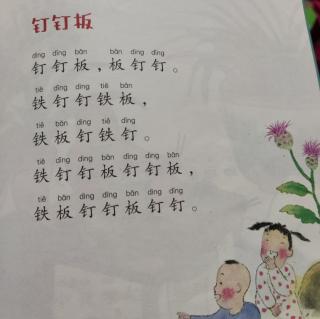 钉钉板
dīng dīng bǎn bǎn dīng dīng
钉钉板，板钉钉。
tiě dīng dīng tiě bǎn
铁钉钉铁板，
tiě bǎn dīng tiě dīng
铁板钉铁钉。
tiě dīng dīng bǎn dīng dīng bǎn
铁钉钉板钉钉板，
tiě bǎn dīng dīng bǎn dīng dīng
铁板钉钉板钉钉。